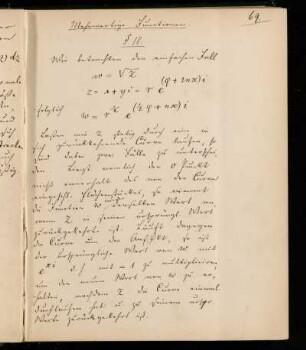 69.
Mehrwertige Functionen
§ 18.
Wir betrachten den einfachen Fall
w = √z
z = x + yi = r e^(φ + 2nπ)i
folglich
w = r^½ e^(½φ + nπ)i
Lassen wir z stetig durch eine in
sich zurückkehrende Curve laufen, so
sind dabei zwei Fälle zu unterscheiden,
Liegt nemlich der 0 Punkt
nicht innerhalb des von der Curve
Flächenstückes, so nimmt
die Function w denselben Wert an,
wenn z in seinen ursprüngl. Wert
zurückgekehrt ist. Läuft dagegen
die Curve um den Anfgspkt, so ist
der ursprüngliche Wert von w mit
e^πi d. h. mit -1 zu multipliciren,
um den neuen Wert von w zu er-
halten, nachdem z die Curve einmal
durchlaufen hat u. zu seinem urspr.
Wert zurückgekehrt ist.